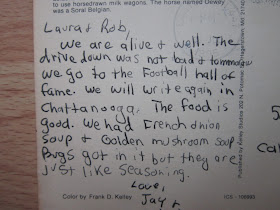 to use horsedrawn milk wagons. The horse named Dewey
was a Soral Belgian.
Laura & Rob,
We are alive & well. The
drive down was not bad & tommorow
we go to the Football hall of
fame. We will write again in
Chattanooga. The food is
good. We had French onion
soup & Golden mushroom soup
Bugs got in it but they are
just like seasoning.
Love,
Jay &
Color by Frank D. Kelley